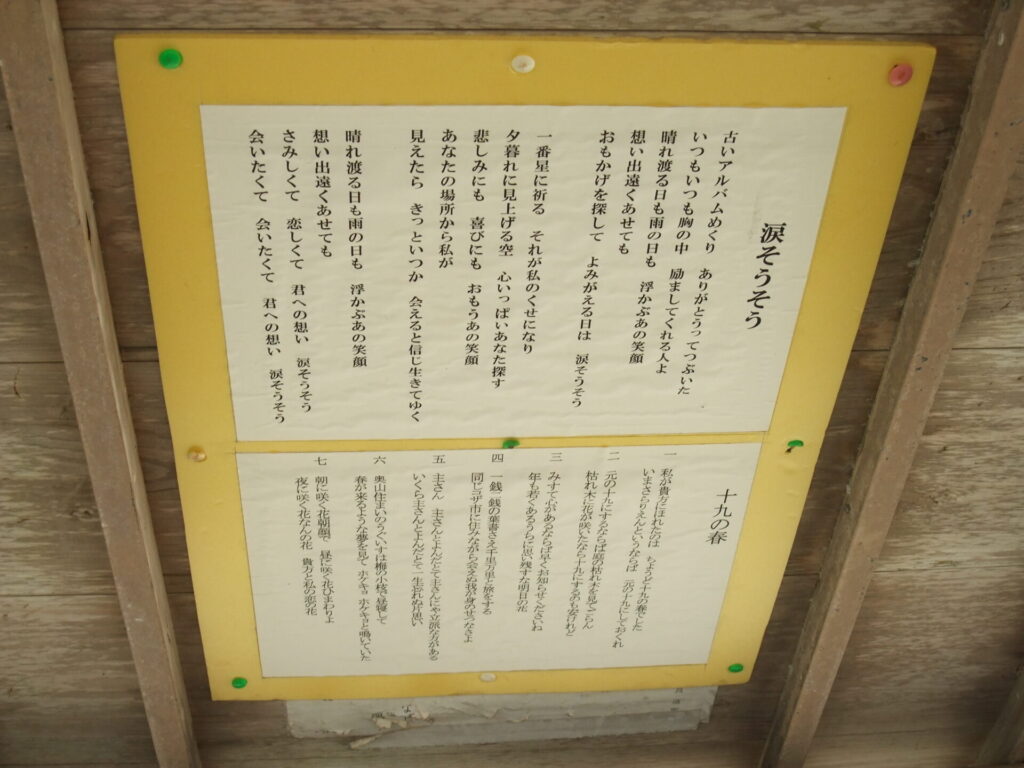 涙そうそう
古いアルバムめくり　ありがとうってつぶいた
いつもいつも胸の中　励ましてくれる人よ
晴れ渡る日も雨の日も　浮かぶあの笑顔
想い出遠くあせても
おもかげを探して　よみがえる日は　涙そうそう
一番星に祈る　それが私のくせになり
夕暮れに見上げる空　心いっぱいあなた探す
悲しみにも　喜びにも　おもうあの笑顔
あなたの場所から私が
見えたら　きっといつか　会えると信じ生きてゆく
晴れ渡る日も雨の日も　浮かぶあの笑顔
想い出遠くあせても
さみしくて　恋しくて　君への想い　涙そうそう
会いたくて　会いたくて　君への想い　涙そうそう
十九の春
一　私が貴方にほれたのは　ちょうど十九の春でした
いまさらりえんというならば　元の十九にしておくれ
二　元の十九にするならば庭の枯れ木を見てごらん
枯れ木に花が咲いたなら十九にするのも安けれど
三　みすて心があるならば早くお知らせくださいね
年も若くあるうちに思い残すな明日の花
四　一銭二銭の葉書さえ千里万里と旅をする
同じコザ市に住みながら会えぬ我が身のせつなさよ
五　主さん　主さんとよんだとて主さんにゃ立派な方がある
いくら主さんとよんだとて　一生忘れぬ片思い
六　奥山住まいのうぐいすは梅の小枝で昼寝して
春が来るような夢を見て　ホケキョ　ホケキョと鳴いていた
七　朝に咲く花朝顔で　昼に咲く花ひまわりよ
夜に咲く花なんの花　貴方と私の恋の花